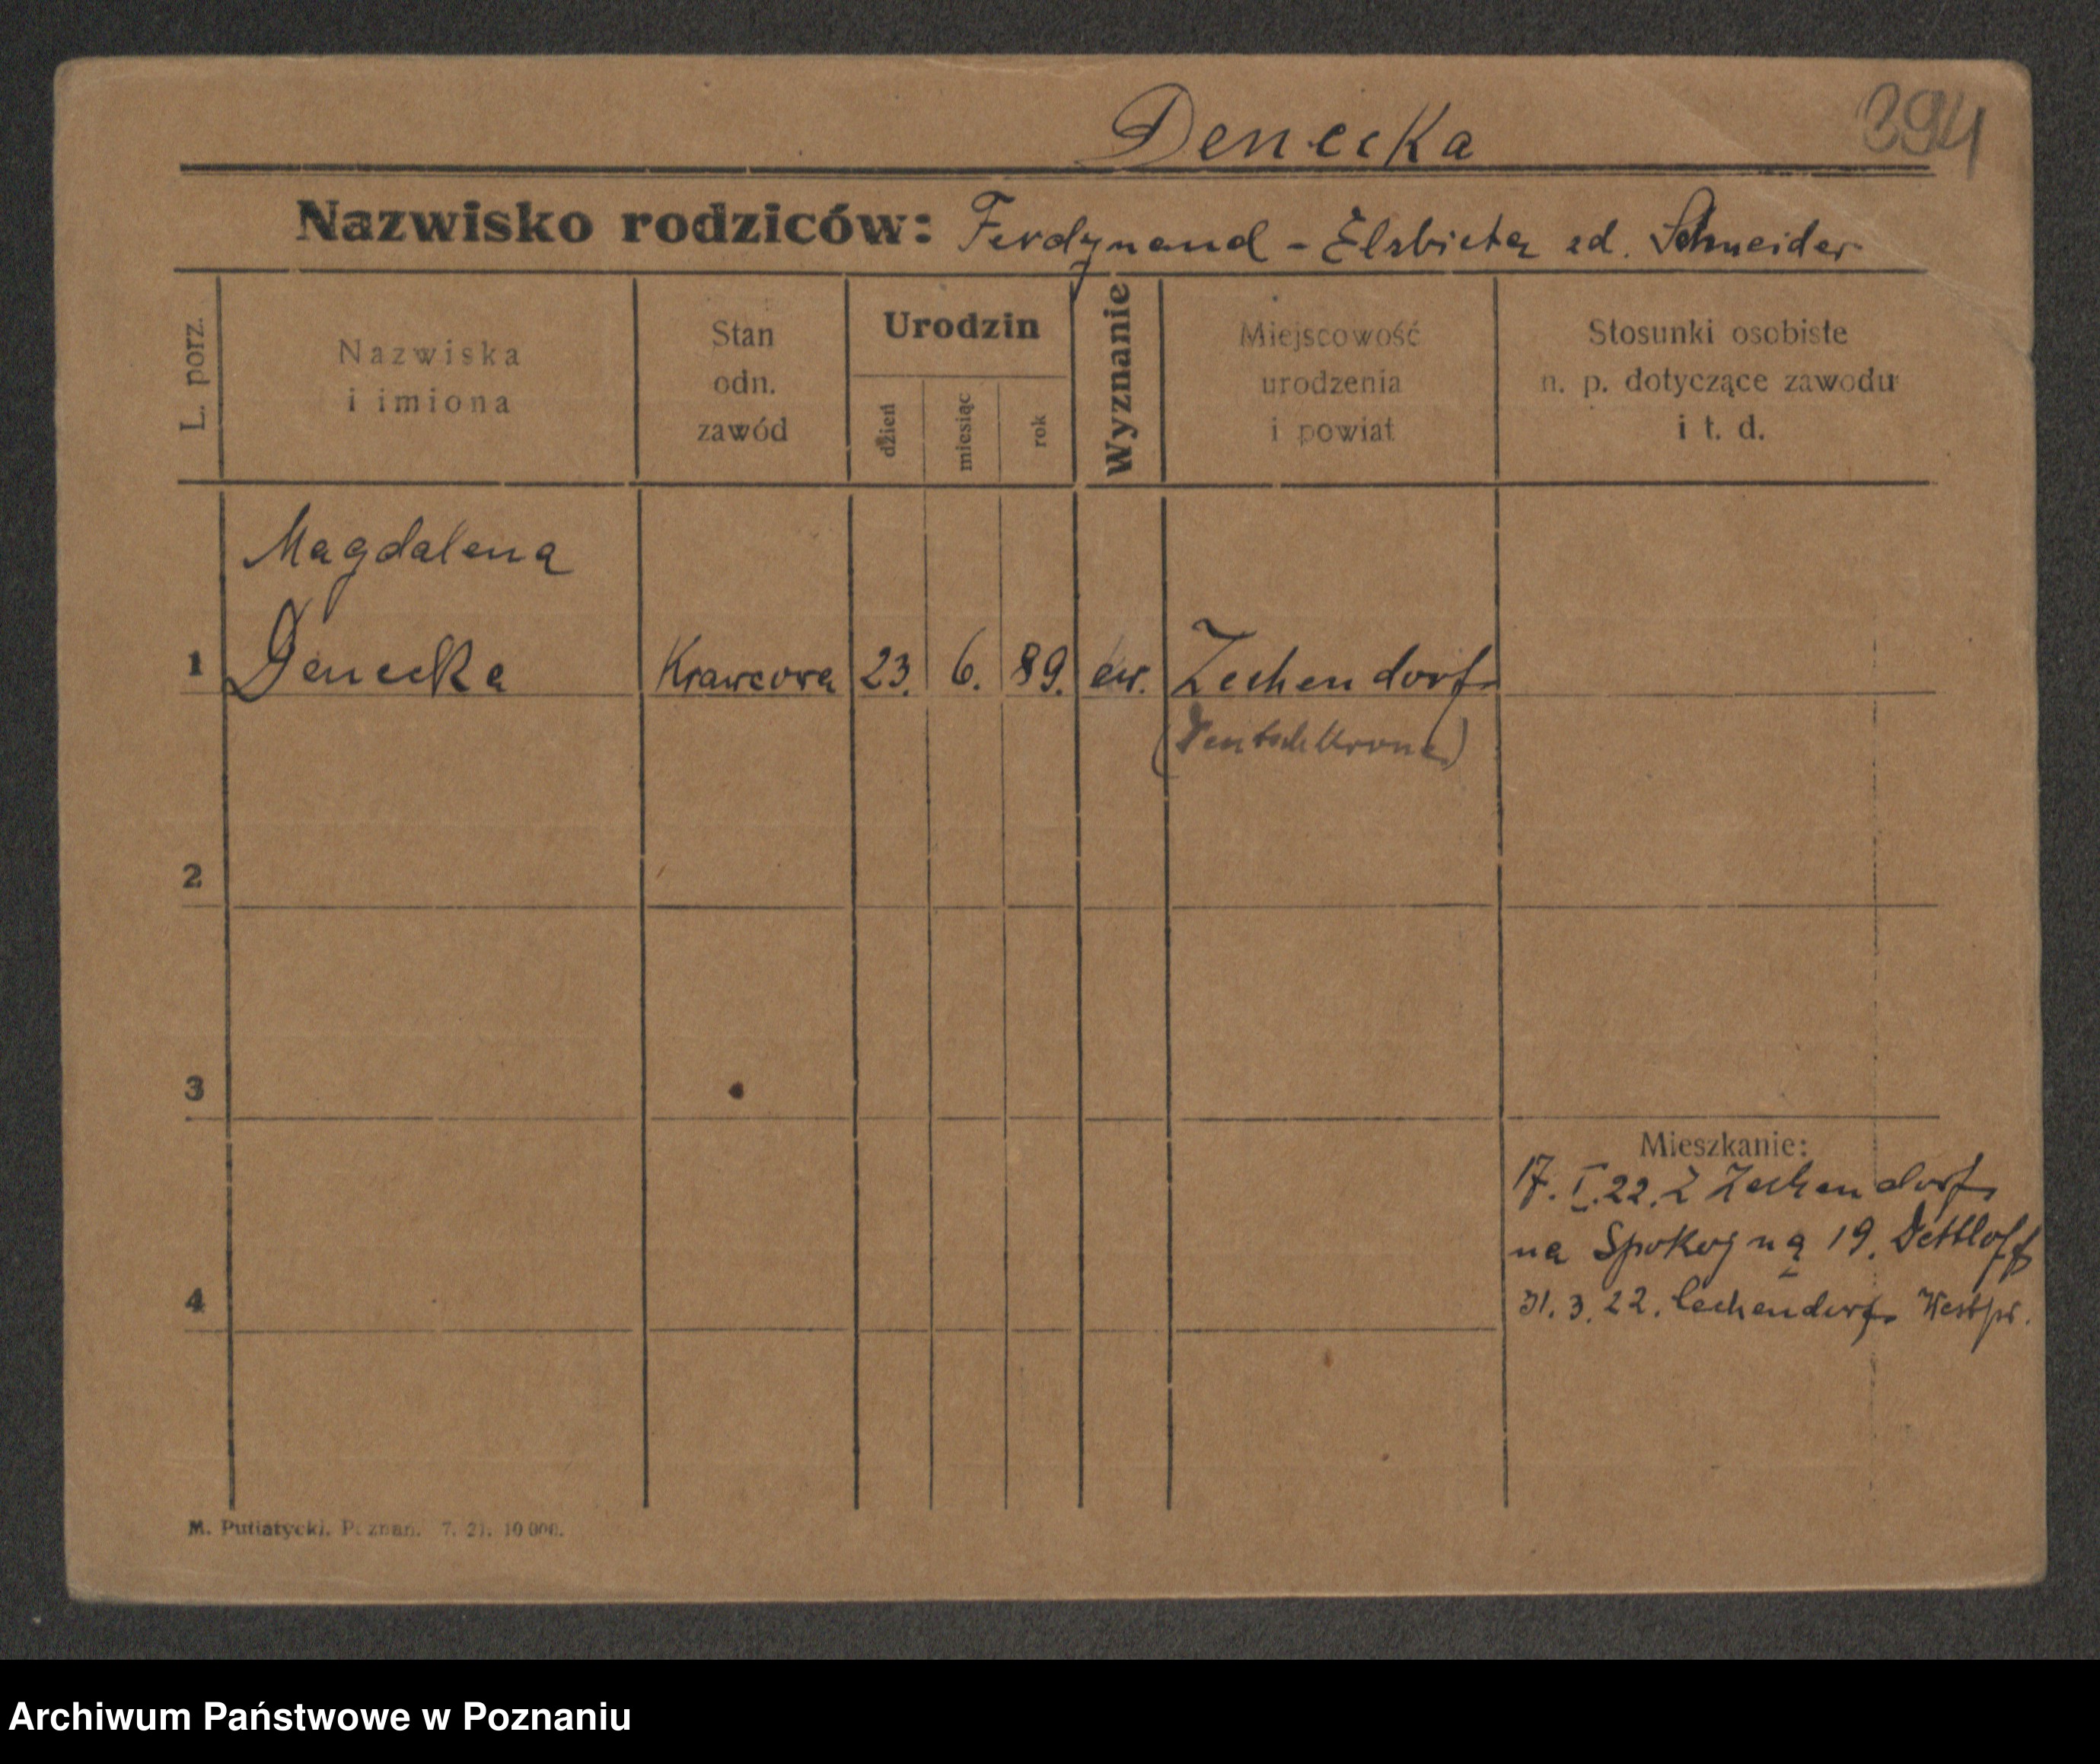 Denecka
394
Nazwisko rodziców: Ferdynand - Elsbieta zd. Schneider
L. porz.
Nazwiska
i imiona
Stan
odn.
zawód
Urodzin
dzień
miesiąc
rok
Wyznanie
Miejscowość
urodzenia
i powiat
Stosunki osobiste
n. p. dotyczące zawodu
i t. d.
Magdalena
1 Denecka Krawcowa 23. 6. 89. ew. Zechendorf
(Deutsch Krone)
2
3
Mieszkanie:
17. I. 22. Z Zechendorf
na Spokojną 19. Dettloff
4 31. 3. 22. Zechendorf Westpr.
M. Putiatycki. Poznań. 7. 21. 10 000.
Archiwum Państwowe w Poznaniu